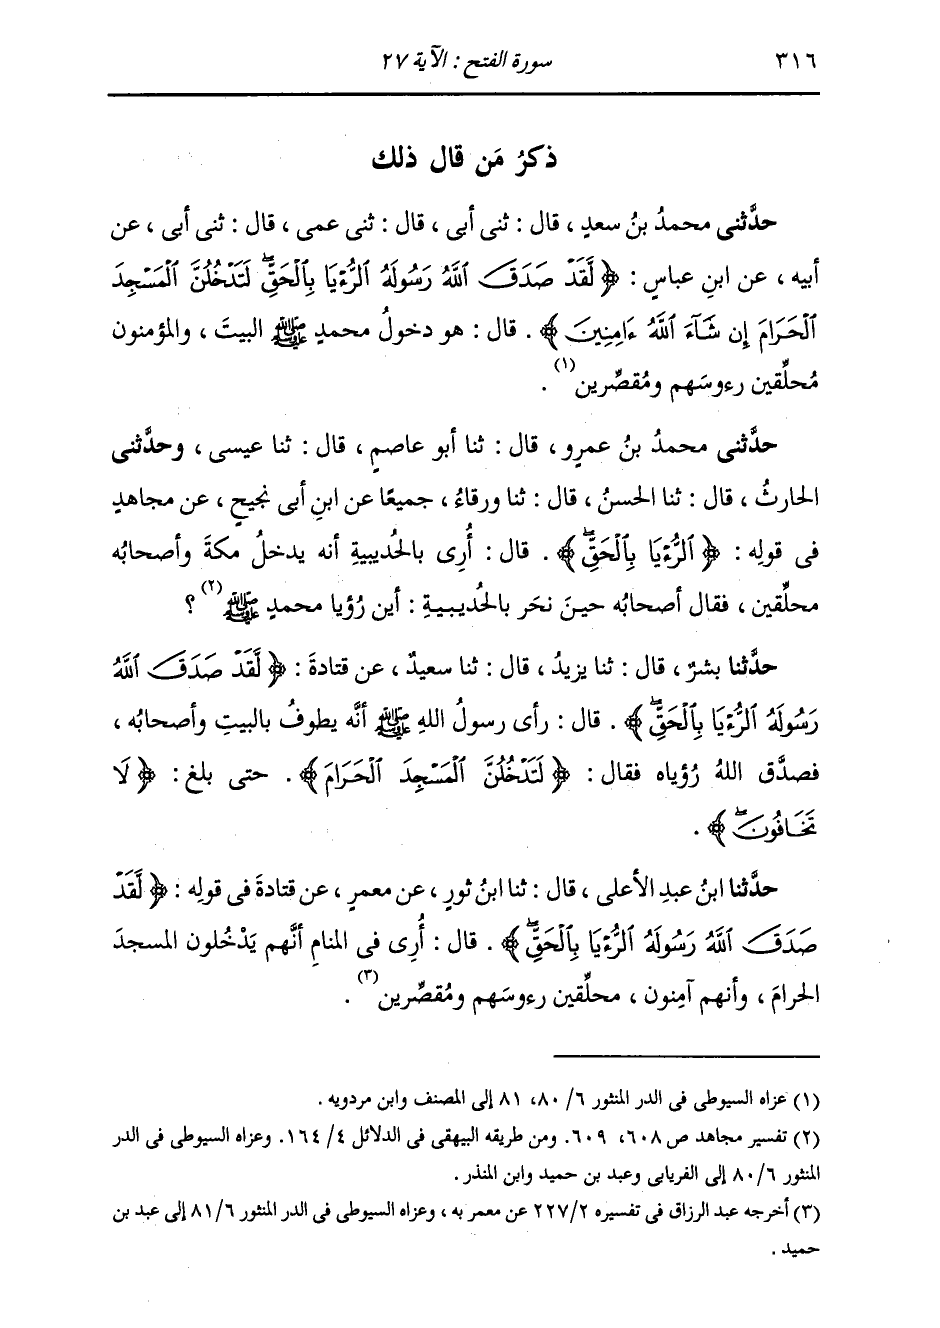 ٣١٦
سورة الفتح : الآية ٢٧
ذكرُ مَن قال ذلك
حدَّثنى محمدُ بنُ سعدٍ ، قال : ثنى أبى ، قال : ثنى عمى ، قال : ثنى أبى ، عن
أبيه ، عن ابنِ عباسٍ : ﴿ لَّقَدْ صَدَقَ ٱللَّهُ رَسُولَهُ ٱلرُّءْيَا بِٱلْحَقِّۖ لَتَدْخُلُنَّ ٱلْمَسْجِدَ
ٱلْحَرَامَ إِن شَآءَ ٱللَّهُ ءَامِنِينَ ﴾ . قال : هو دخولُ محمدٍ ﷺ البيتَ ، والمؤمنون
مُحلِّقين رءوسَهم ومُقصِّرين(١) .
حدَّثنى محمدُ بنُ عمرٍو ، قال : ثنا أبو عاصمٍ ، قال : ثنا عيسى ، وحدَّثنى
الحارثُ ، قال : ثنا الحسنُ ، قال : ثنا ورقاءُ ، جميعًا عن ابنِ أبى نجيحٍ ، عن مجاهدٍ
فى قولِه : ﴿ ٱلرُّءْيَا بِٱلْحَقِّۖ ﴾ . قال : أُرِى بالحُديبيةِ أنه يدخلُ مكةَ وأصحابُه
محلِّقين ، فقال أصحابُه حينَ نحَر بالحُديبيةِ : أين رُؤيا محمدٍ ﷺ(٢) ؟
حدَّثنا بشرٌ ، قال : ثنا يزيدُ ، قال : ثنا سعيدٌ ، عن قتادةَ : ﴿ لَّقَدْ صَدَقَ ٱللَّهُ
رَسُولَهُ ٱلرُّءْيَا بِٱلْحَقِّۖ ﴾ . قال : رأى رسولُ اللهِ ﷺ أنَّه يطوفُ بالبيتِ وأصحابُه ،
فصدَّق اللهُ رُؤياه فقال : ﴿ لَتَدْخُلُنَّ ٱلْمَسْجِدَ ٱلْحَرَامَ ﴾ . حتى بلغ : ﴿ لَا
تَخَافُونَۖ ﴾ .
حدَّثنا ابنُ عبدِ الأعلى ، قال : ثنا ابنُ ثورٍ ، عن معمرٍ ، عن قتادةَ فى قولِه : ﴿ لَّقَدْ
صَدَقَ ٱللَّهُ رَسُولَهُ ٱلرُّءْيَا بِٱلْحَقِّۖ ﴾ . قال : أُرِى فى المنامِ أنَّهم يَدْخُلون المسجدَ
الحرامَ ، وأنهم آمِنون ، محلِّقين رءوسَهم ومُقصِّرين(٣) .
(١) عزاه السيوطى فى الدر المنثور ٦/ ٨٠، ٨١ إلى المصنف وابن مردويه .
(٢) تفسير مجاهد ص ٦٠٨، ٦٠٩. ومن طريقه البيهقى فى الدلائل ٤/ ١٦٤. وعزاه السيوطى فى الدر
المنثور ٨٠/٦ إلى الفريابى وعبد بن حميد وابن المنذر .
(٣) أخرجه عبد الرزاق فى تفسيره ٢٢٧/٢ عن معمر به ، وعزاه السيوطى فى الدر المنثور ٨١/٦ إلى عبد بن
حميد .